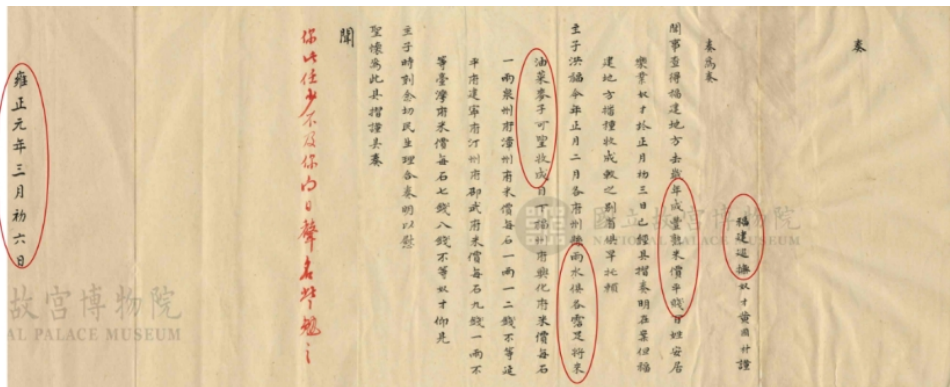 奏
福建巡撫奴才黃國材謹
奏為奏
聞事查得福建地方去歲年成豐熟米價平賤百姓安居
樂業奴才於正月初三日已經具摺奏明在案但福
建地方播種收成較之別省俱早托賴
主子洪福今年正月二月各府州縣雨水俱各霑足將來
油菜麥子可望收成目下福州府興化府米價每石
一兩泉州府漳州府米價每石一兩一二錢不等延
平府建寧府汀州府邵武府米價每石九錢一兩不
等臺灣府米價每石七錢八錢不等奴才仰見
主子時刻念切民生理合奏明以慰
聖懷為此具摺謹具奏
聞
你比任少不及你向日聲名些勉之
雍正元年三月初六日
國立故宮博物院
NATIONAL PALACE MUSEUM
故宮博物院
AL PALACE MUSEUM